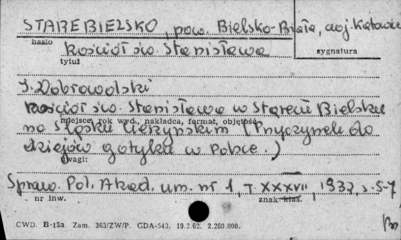 STAREBIELSKO, pow. Bielsko-Biała, woj. Katowice
hasło
Kościół św. Stanisława
sygnatura
tytuł
J. Dobrowolski
Kościół św. Stanisława w Starem Bielsku
miejsce, rok wyd., nakładca, format, objętość
na Śląsku Cieszyńskim (Przyczynek do
dziejów gotyku w Polsce.)
uwagi:
Spraw. Pol. Akad. um. nr 1, T. XXXVII, 1932, s. 5-7
nr inw.
znak klas.
CWD. B-15a. Zam. 363/ZW/P. GDA-543. 19.2.62. 2.200.000.